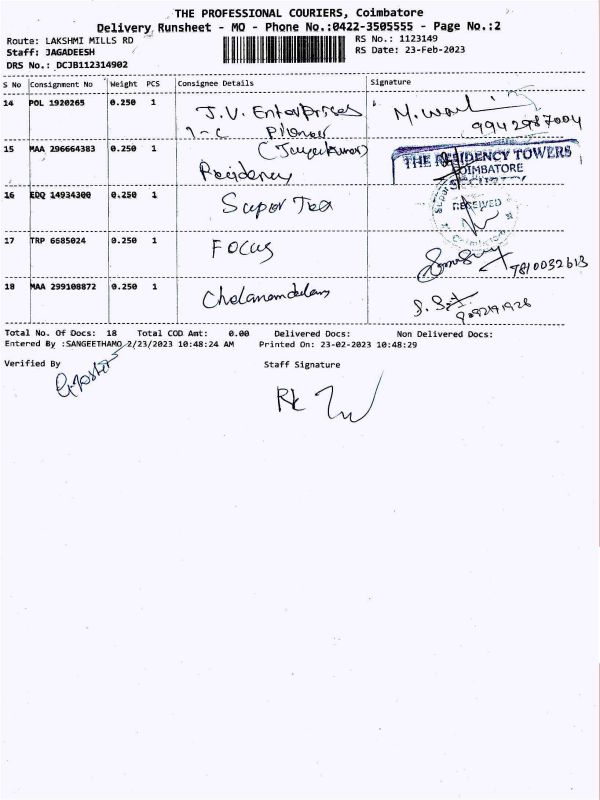 THE PROFESSIONAL COURIERS, Coimbatore
Delivery Runsheet - MO - Phone No.:0422-3505555 - Page No.:2
Route: LAKSHMI MILLS RD
RS No.: 1123149
Staff: JAGADEESH
RS Date: 23-Feb-2023
DRS No.: DCJB112314902
S No Consignment No Weight PCS Consignee Details Signature
14 POL 1920265 0.250 1 J.V. Enterprises
1-C
9942987004
15 MAA 296664383 0.250 1
Residency
THE RESIDENCY TOWERS
COIMBATORE
SECURITY
16 EDQ 14934300 0.250 1 Super Tex
RECEIVED
17 TRP 6685024 0.250 1 Focus
7810032613
18 MAA 299108872 0.250 1 Cholamandalam
Total No. Of Docs: 18 Total COD Amt: 0.00 Delivered Docs: Non Delivered Docs:
Entered By :SANGEETHAMO 2/23/2023 10:48:24 AM Printed On: 23-02-2023 10:48:29
Verified By Staff Signature